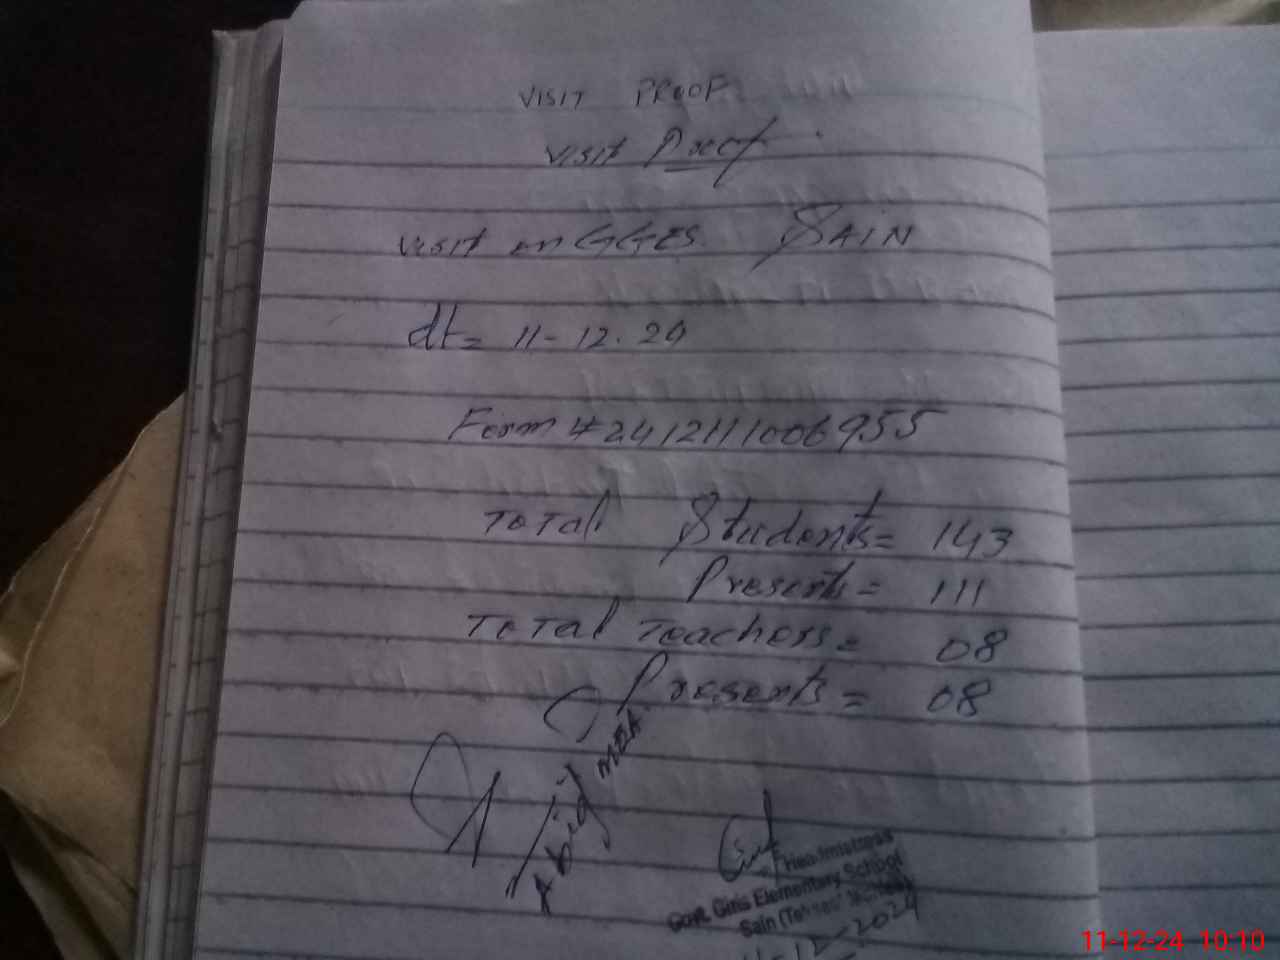 VISIT PROOF
Visit Proof
Visit in GGES SAIN
dt= 11-12.24
Form # 2412111006955
Total Students= 143
Presents= 111
Total Teachers= 08
Presents= 08
Abid MEA
Headmistress
Govt. Girls Elementary School
Sain (Tehsee
11-12-2024
11-12-24 10:10